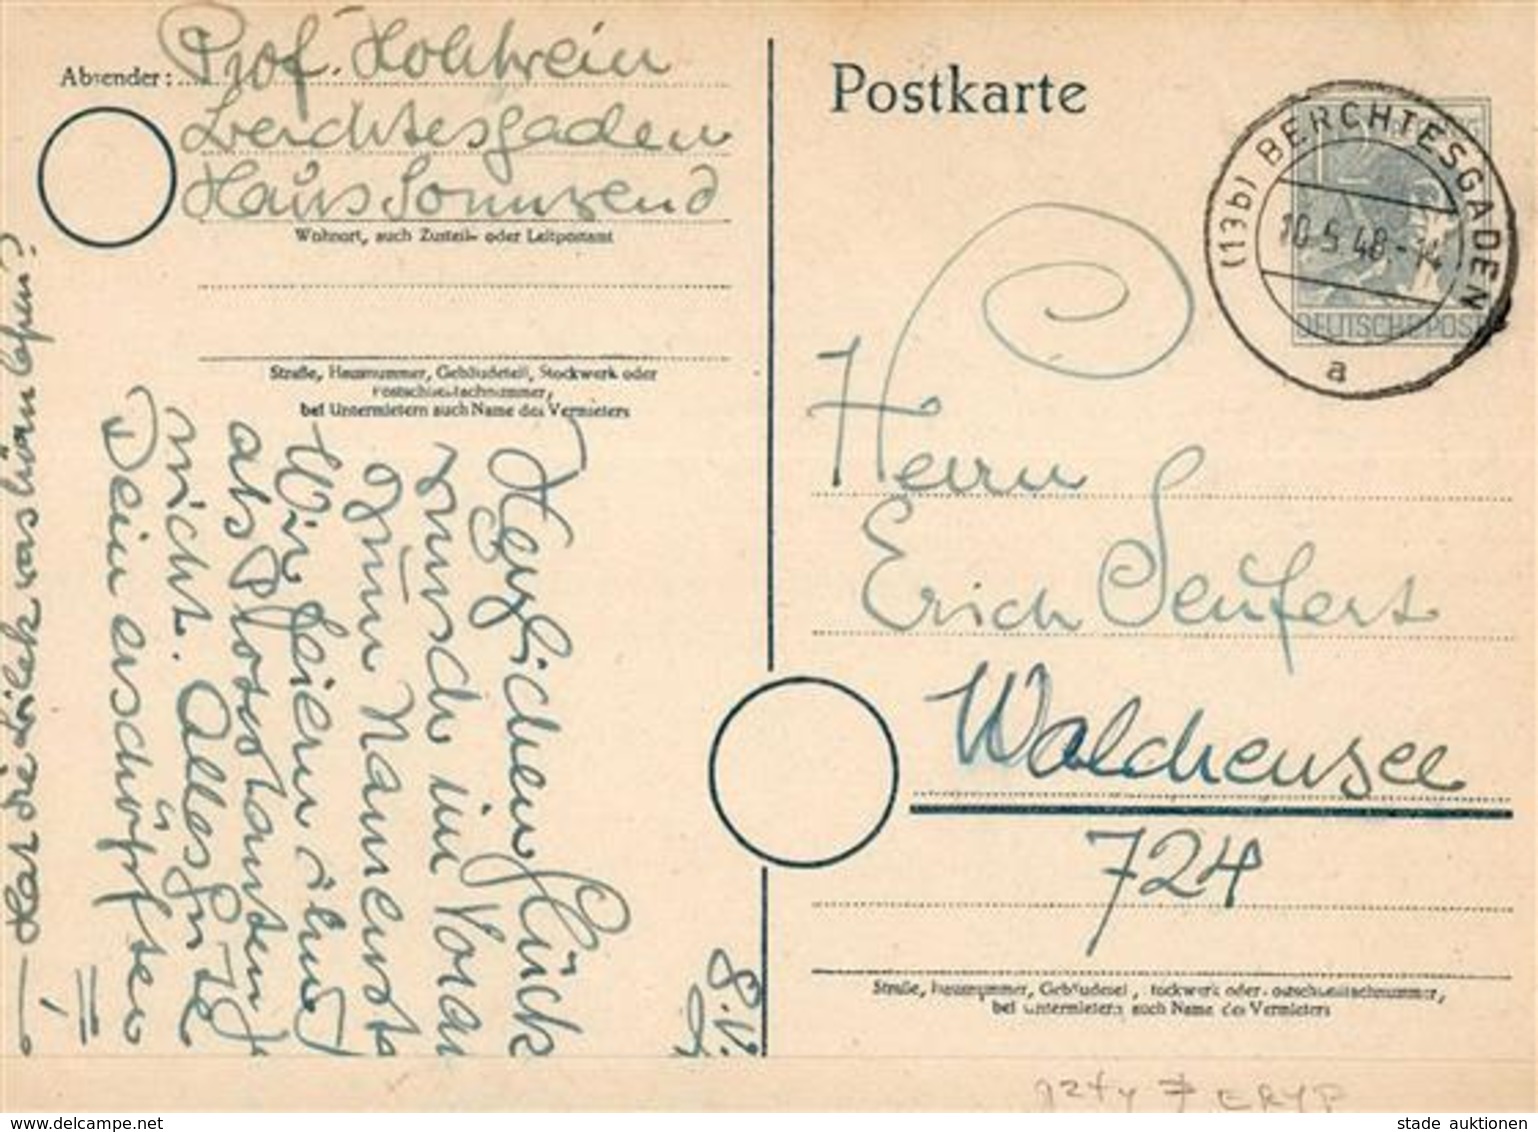 Absender: Prof. Hohlwein
Berchtesgaden
Haus Sonnwend
Wohnort, auch Zustell- oder Leitpostamt
Straße, Hausnummer, Gebäudeteil, Stockwerk oder
Postschließfachnummer,
bei Untermietern auch Name des Vermieters
Postkarte
(13b) BERCHTESGADEN
10.5.48.-14
a
DEUTSCHE POST
Herrn
Erich Seufert
Walchensee
724
Straße, Hausnummer, Gebäudeteil, Stockwerk oder Postschließfachnummer,
bei Untermietern auch Name des Vermieters
8.V.
Herzlichen Glück
wunsch im Voraus
zum Namenst
Wir feiern ihn
als Protestanten
nicht. Alles Gute
Dein erschöpfter
Hat die
stade auktionen